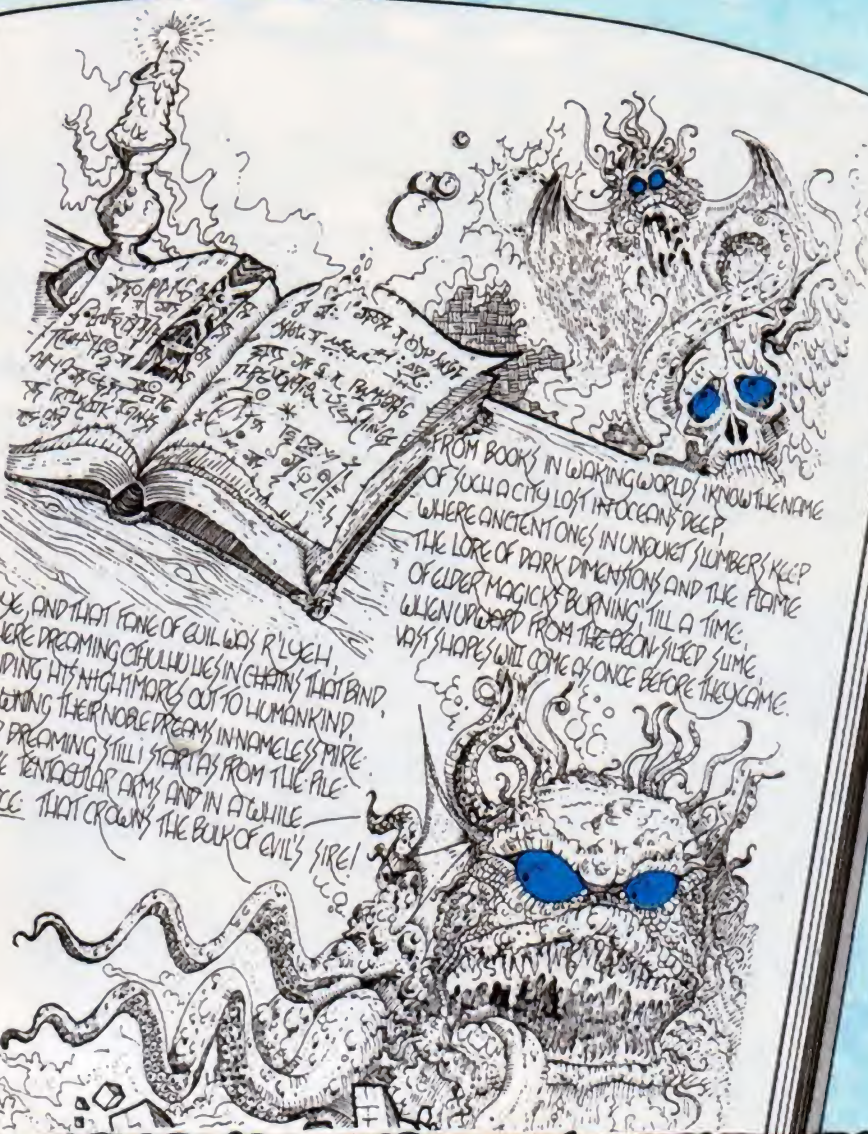 FROM BOOKS IN WAKING WORLDS I KNOW THE NAME
OF SUCH A CITY LOST IN OCEANS DEEP,
WHERE ANCIENT ONES IN UNQUIET SLUMBERS KEEP
THE LORE OF DARK DIMENSIONS AND THE FLAME
OF ELDER MAGICKS BURNING, TILL A TIME,
WHEN UPWARD FROM THE AEON-SILTED SLIME,
VAST SHAPES WILL COME AS ONCE BEFORE THEY CAME.
YE, AND THAT FANE OF EVIL WAS R'LYEH,
ERE DREAMING CTHULHU LIES IN CHAINS THAT BIND,
DING HIS NIGHTMARES OUT TO HUMANKIND,
WNING THEIR NOBLE DREAMS IN NAMELESS MIRE.
DREAMING STILL I START AS FROM THE PILE
TENTACULAR ARMS AND IN A WHILE
THAT CROWNS THE BULK OF EVIL'S SIRE!